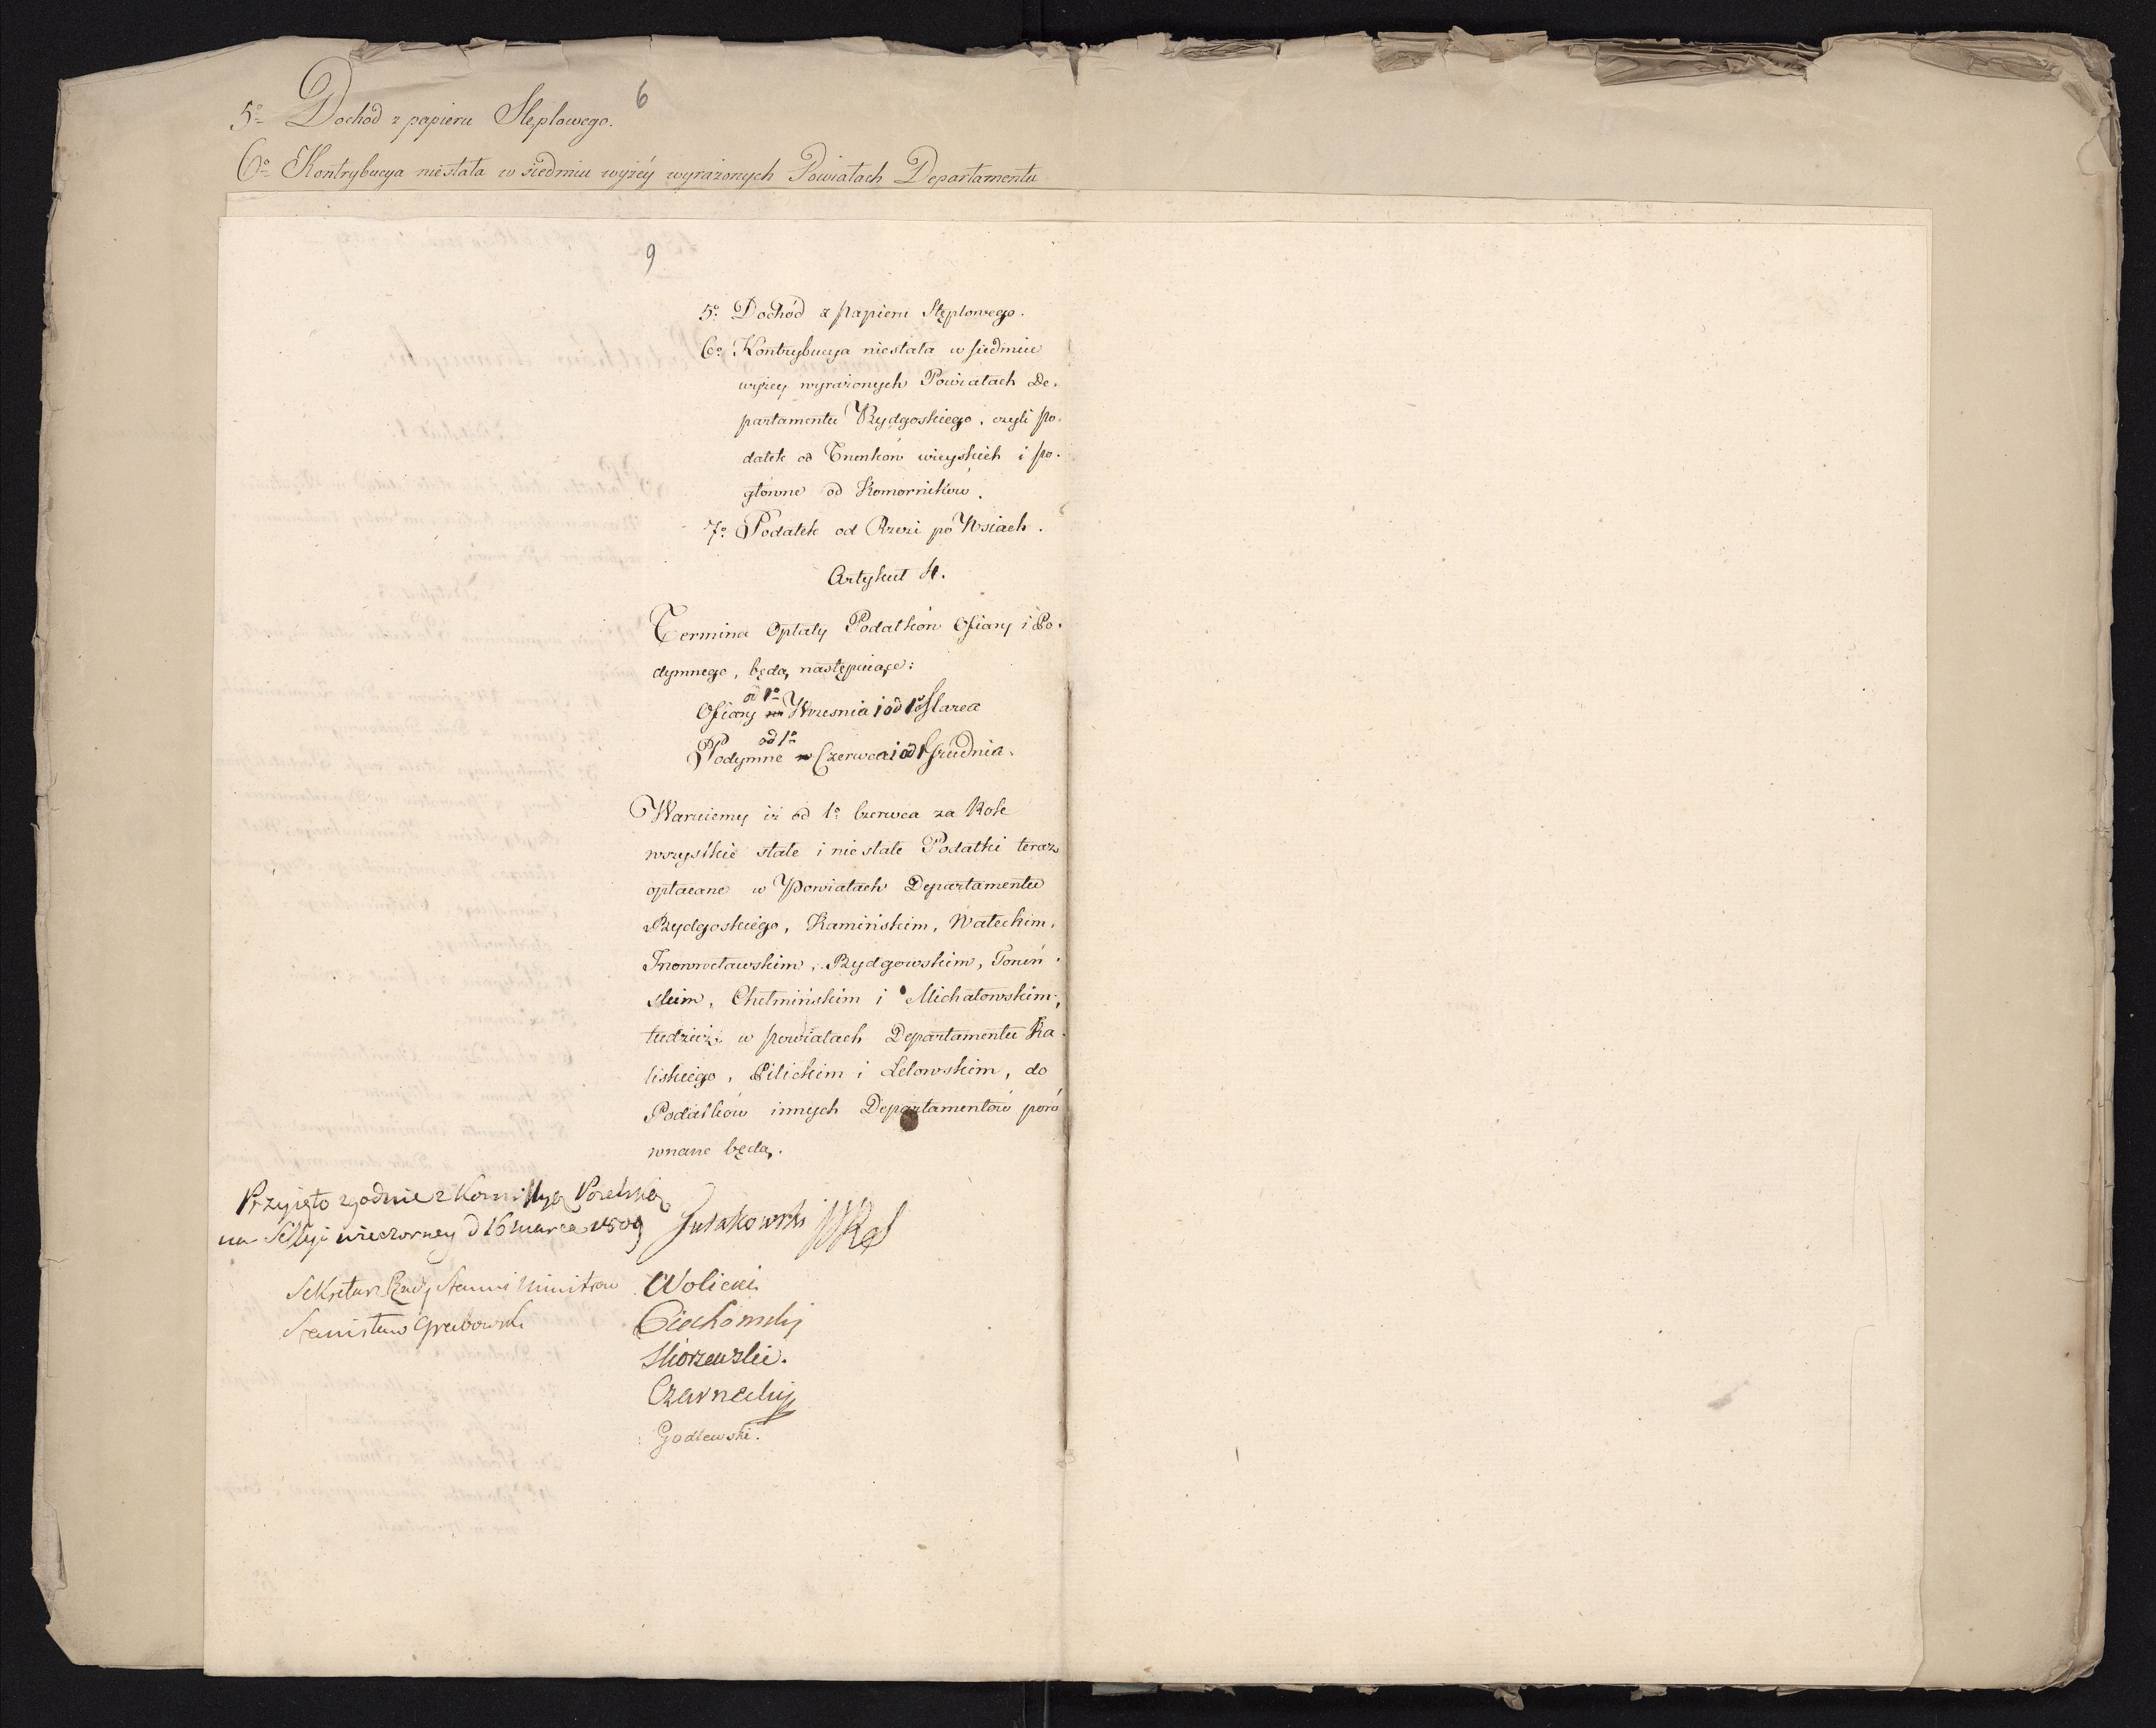 6
5º Dochód z papieru Steplowego.
6º Kontrybucya niestała w siedmiu wyżéy wyrażonych Powiatach Departamentu
9
5º Dochód z papieru Stęplowego.
6º Kontrybucya niestała w siedmiu
wyżey wyrażonych Powiatach De-
partamentu Bydgoskiego, czyli po-
datek od Trunków wieyskich i po-
główne od Komorników.
7º Podatek od Rzezi po Wsiach.
Artykuł 4.
Termina Opłaty Podatków Ofiary i Po-
dymnego, będą następuiące:
od 1º
Ofiary Wrzesnia i od 1º Marca
od 1º
Podymne w Czerwca i od 1 Grudnia.
Waruiemy iż od 1º Czerwca za Rok
wszystkie stałe i niestałe Podatki teraz
opłacane w Powiatach Departamentu
Bydgoskiego, Kamińskim, Wałeckim,
Inowrocławskim, Bydgowskim, Toruń-
skim, Chełmińskim i Michałowskim,
tudzież w powiatach Departamentu Ka-
liskiego, Pilickim i Lelowskim, do
Podatków innych Departamentów poró
wnane będą.
Przyięto zgodnie z Kommissyą Poselską
na Sessyi wieczorney d 16 marca 1809
Sekretarz Rady Stanu i Ministrow
Stanisław Grabowski
Wolicki
Ciechomski
Skorzewski.
Czarnecki
Godlewski.